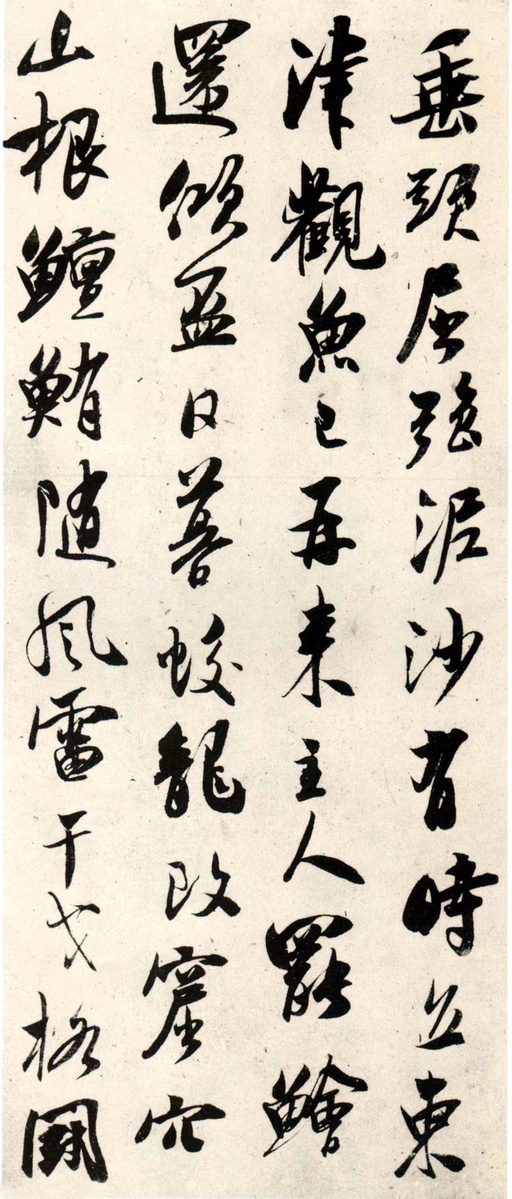 垂頭屈强泥沙有時立東
津觀魚已再来主人罷鱠
還傾盃日暮蛟龍改窟穴
山根鱣鮪随風雷干戈格鬭